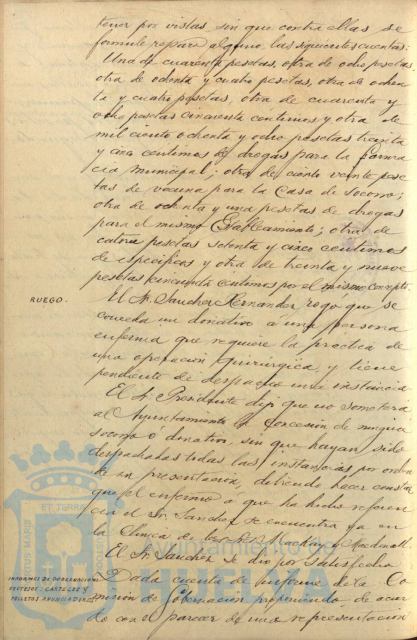 tener por vistas sin que contra ellas se
formule reparo alguno, las siguientes cuentas:
Una de cuarenta pesetas, otra de ocho pesetas,
otra de ochenta y cuatro pesetas, otra de ochen
ta y cuatro pesetas, otra de cuarenta y
ocho pesetas cincuenta centimos y otra de
mil ciento ochenta y ocho pesetas treinta
y cinco centimos de drogas para la farma
cia municipal; otra de ciento veinte pese
tas de vacuna para la Casa de Socorro;
otra de ochenta y una pesetas de drogas
para el mismo Establecimiento; otra de
catorce pesetas setenta y cinco centimos
de especificos y otra de treinta y nueve
pesetas cincuenta centimos por el mismo concepto.
RUEGO.
El Sr. Sanchez Hernandez rogó que se
conceda un donativo a una persona
enferma que requiere la practica de
una operacion quirúrgica, y tiene
pendiente de despacho una instancia
El Sr. Presidente dijo que no someterá
al Ayuntamiento la concesión de ningun
socorro ó donativo, sin que hayan sido
despachadas todas las instancias por orden
de su presentación, debiendo hacer constar
que el enfermo a que ha hecho referen
cia el Sr. Sanchez se encuentra ya en
la Clinica de los Sres. Mackay y Macdonall.
El Sr. Sanchez se dio por satisfecho
INFORMES DE GOBERNACION
FOLLETOS ANUNCIADORES
Dada cuenta de informe de la Co
misión de Gobernación proponiendo, de acuer
do con el parecer de una representación
Ayuntamiento de
HUELVA